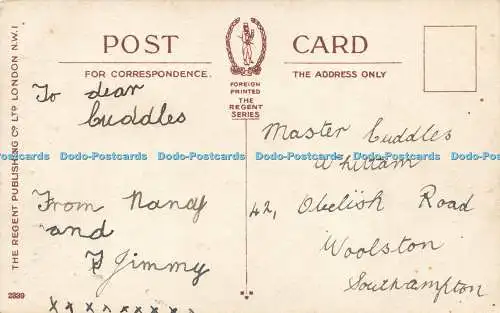 POST CARD
FOR CORRESPONDENCE.
THE ADDRESS ONLY
FOREIGN
PRINTED
THE
REGENT
SERIES
THE REGENT PUBLISHING Co LTD LONDON N.W.1
2339
To dear
Cuddles
From Nancy
and
Jimmy
x x x x x x x x
Master Cuddles
Whittam
42, Obelish Road
Woolston
Southampton
Dodo-Postcards Dodo-Postcards Dodo-Postcards Dodo-Postcards Dodo-Postcards Dodo-Postcards